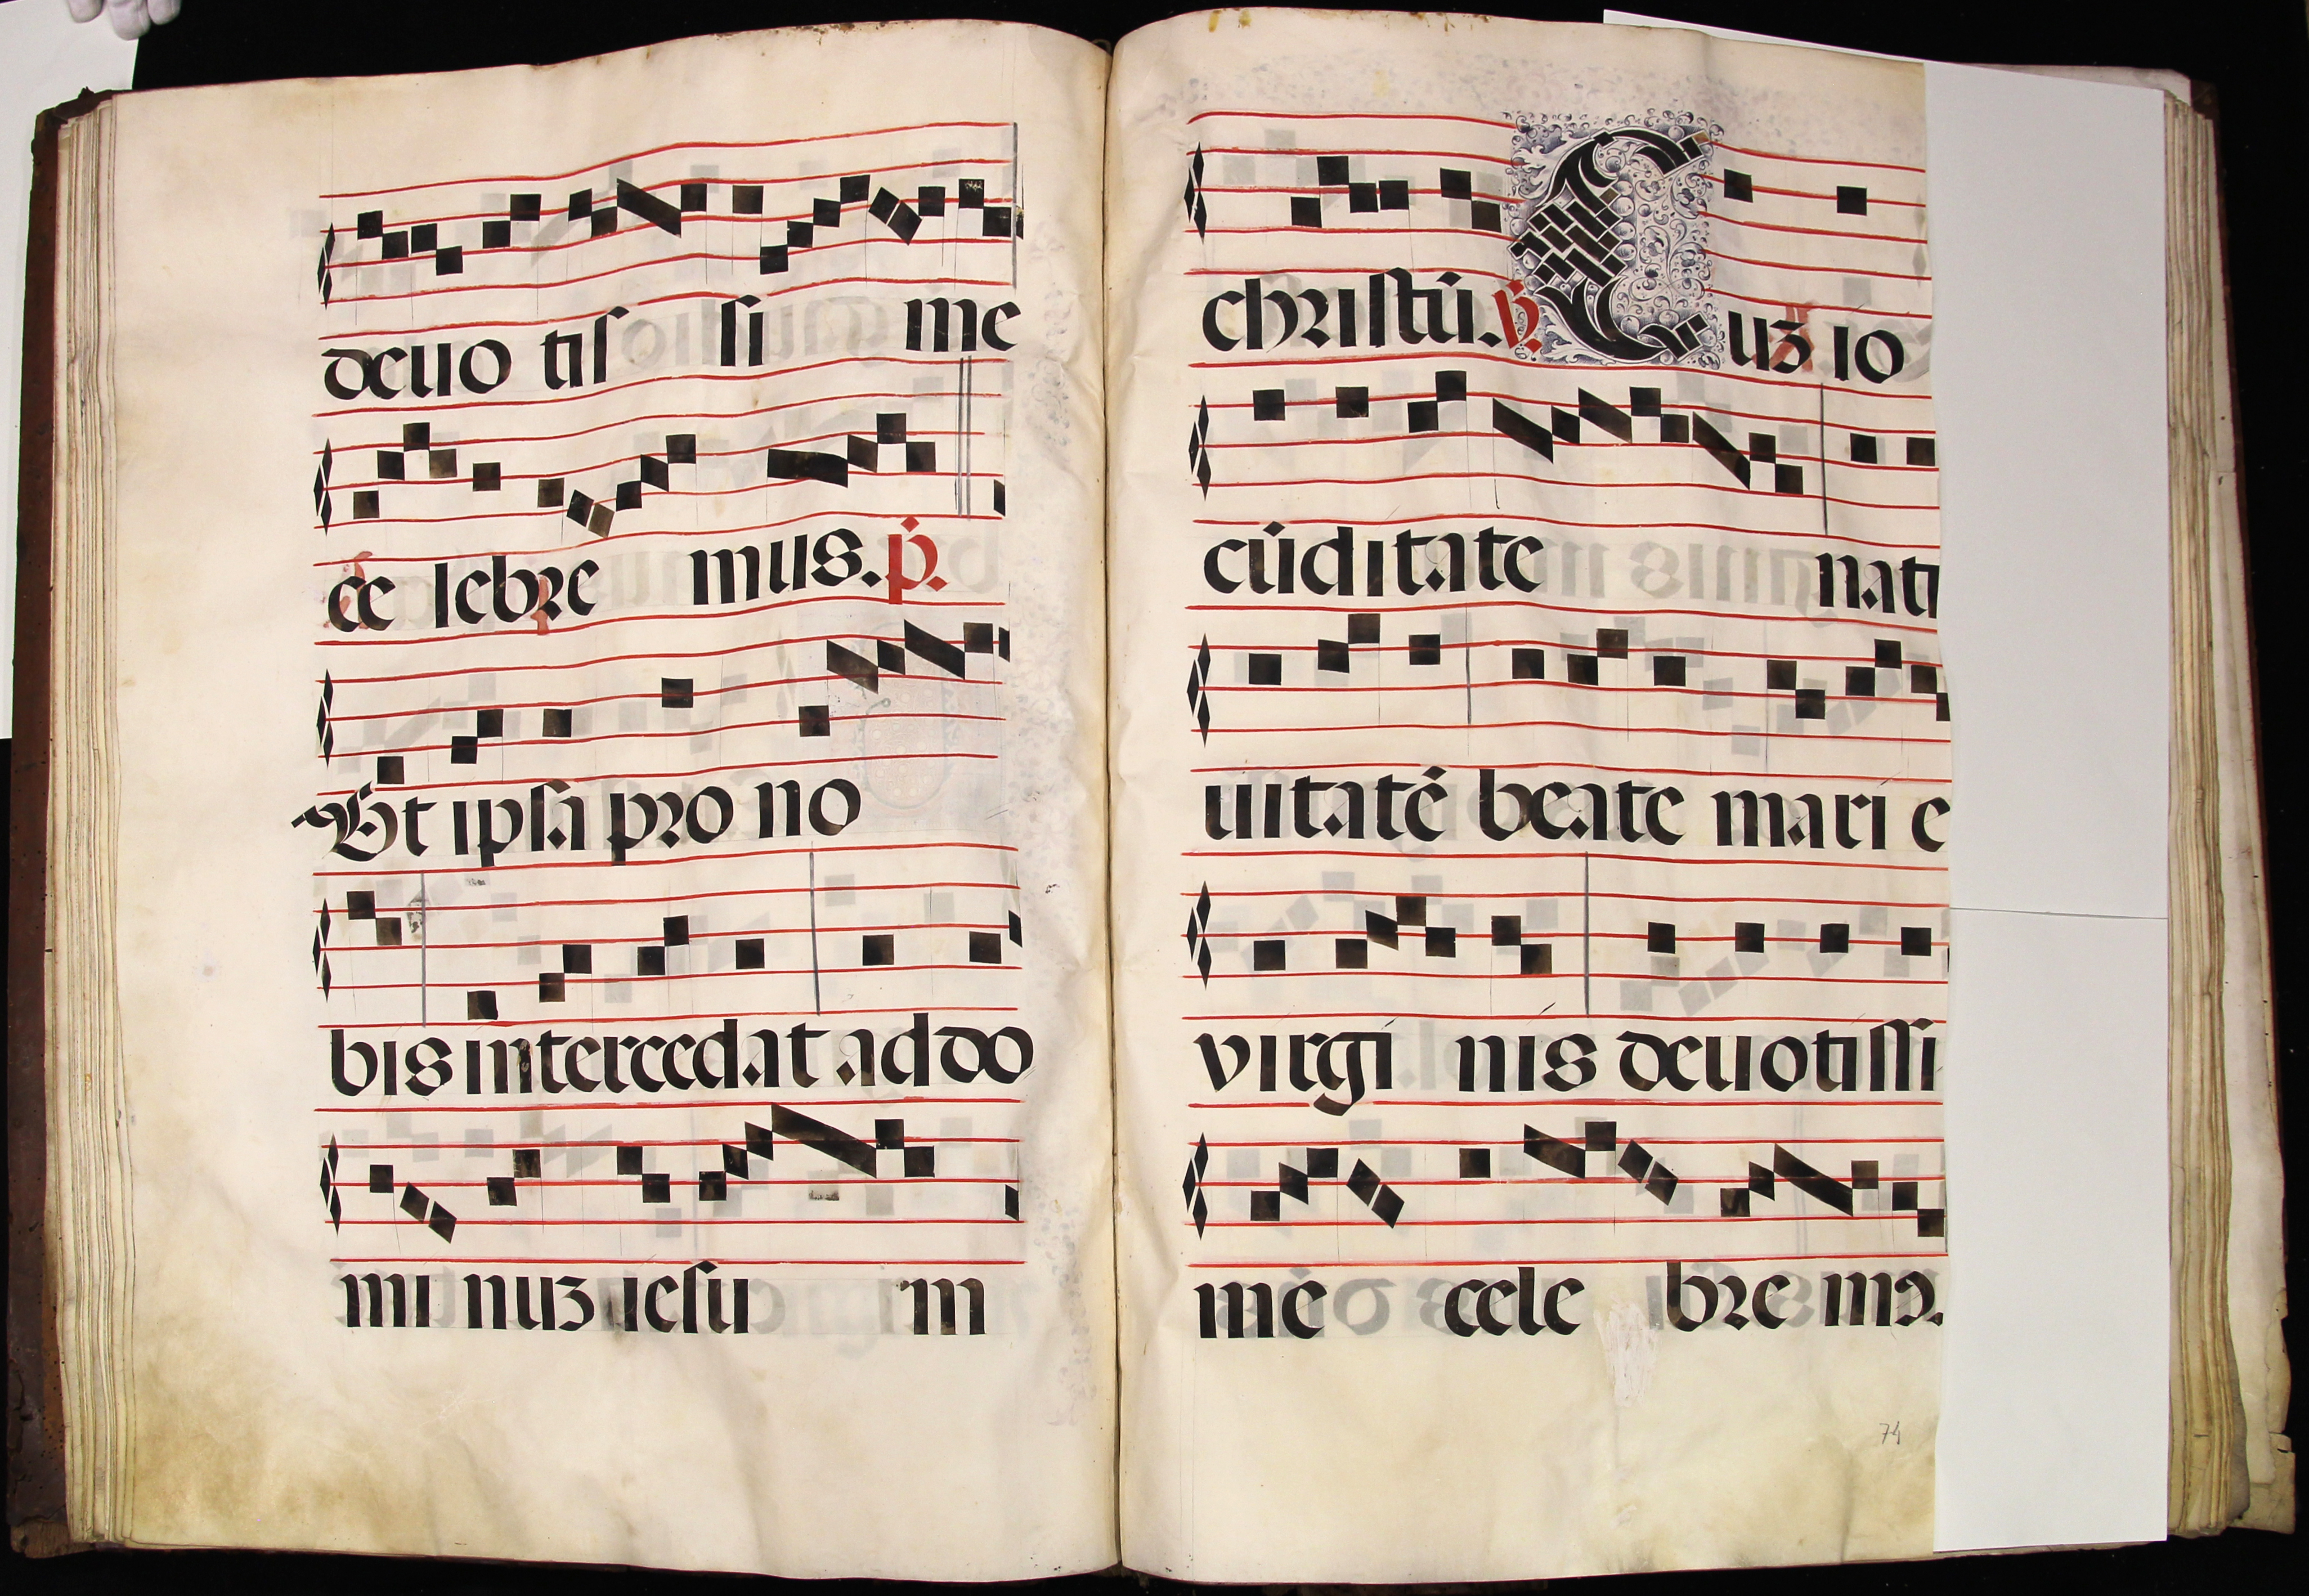 deuo tiſ ſi me
ce lebre mus. p.
Et ipſa pro no
bis intercedat ad do
mi nuz ieſu m
chriſtū. ℣. Cuz io
cūditate nati
uitatē beate mari e
virgi nis deuotiſſi
me cele bre mꝰ.
74